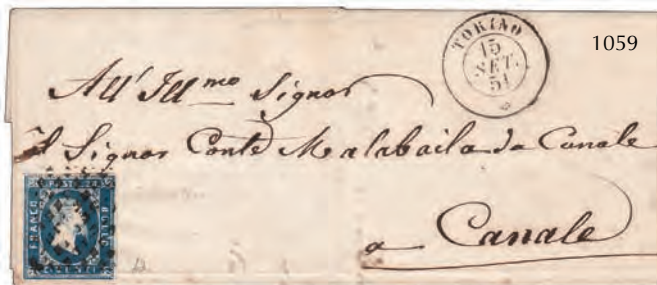 1059
TORINO
15
SET.
51
All' Ill.mo Signor
il Signor Conte Malabaila da Canale
a Canale
FRANCO
BOLLO